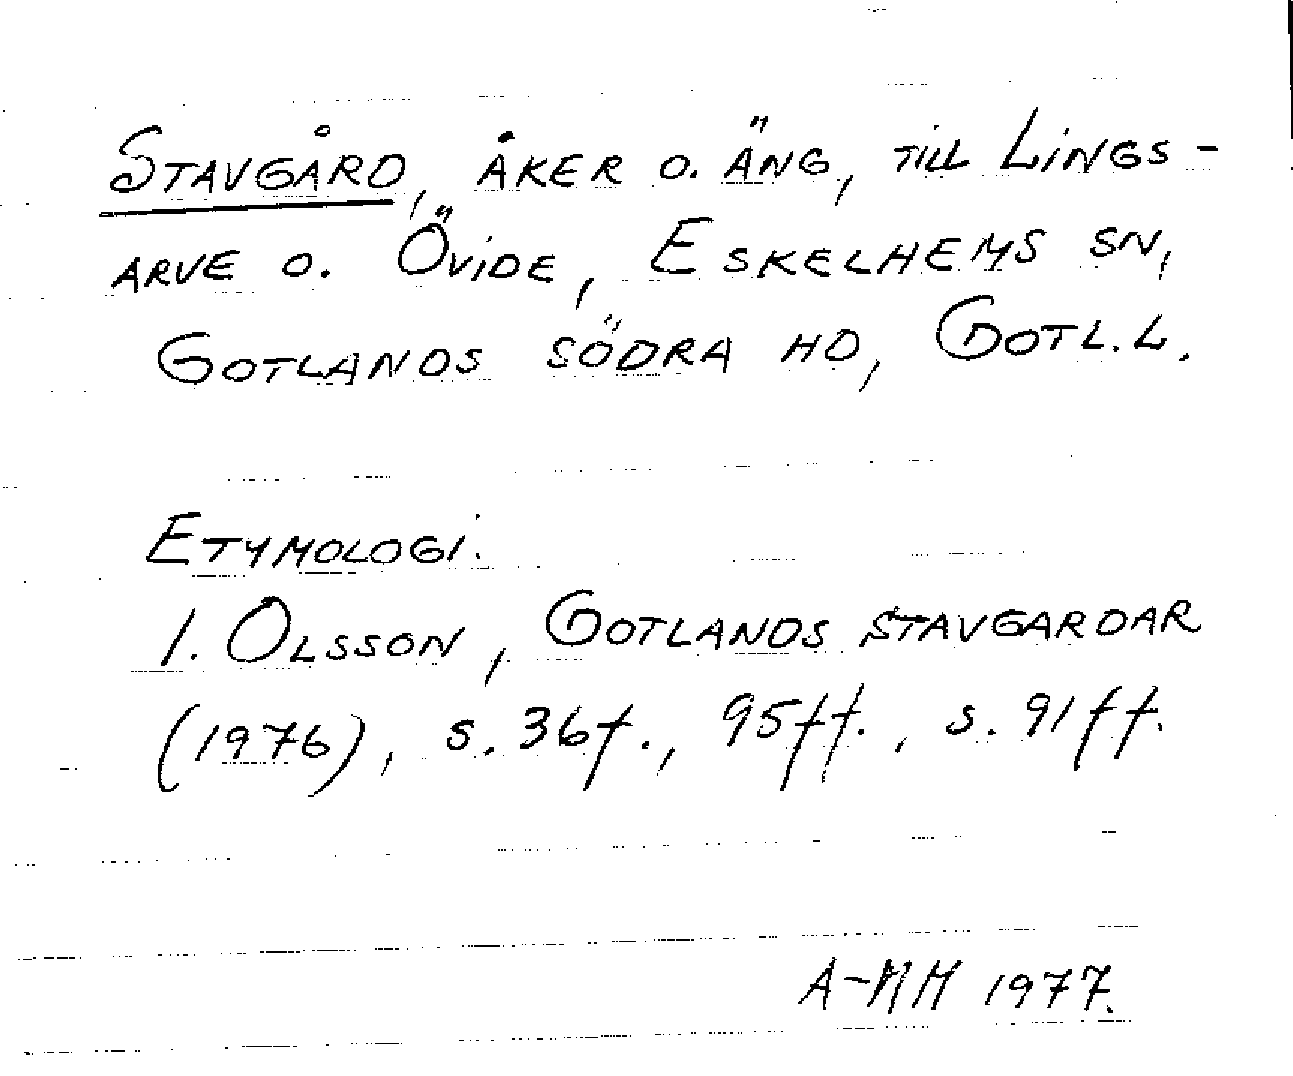 Stavgård, åker o. äng, till Lings-
arve o. Övide, Eskelhems sn,
Gotlands södra hd, Gotl. l.
Etymologi.
I. Olsson, Gotlands stavgardar
(1976), s. 36f., 95ff., s. 91ff.
A-MM 1977.